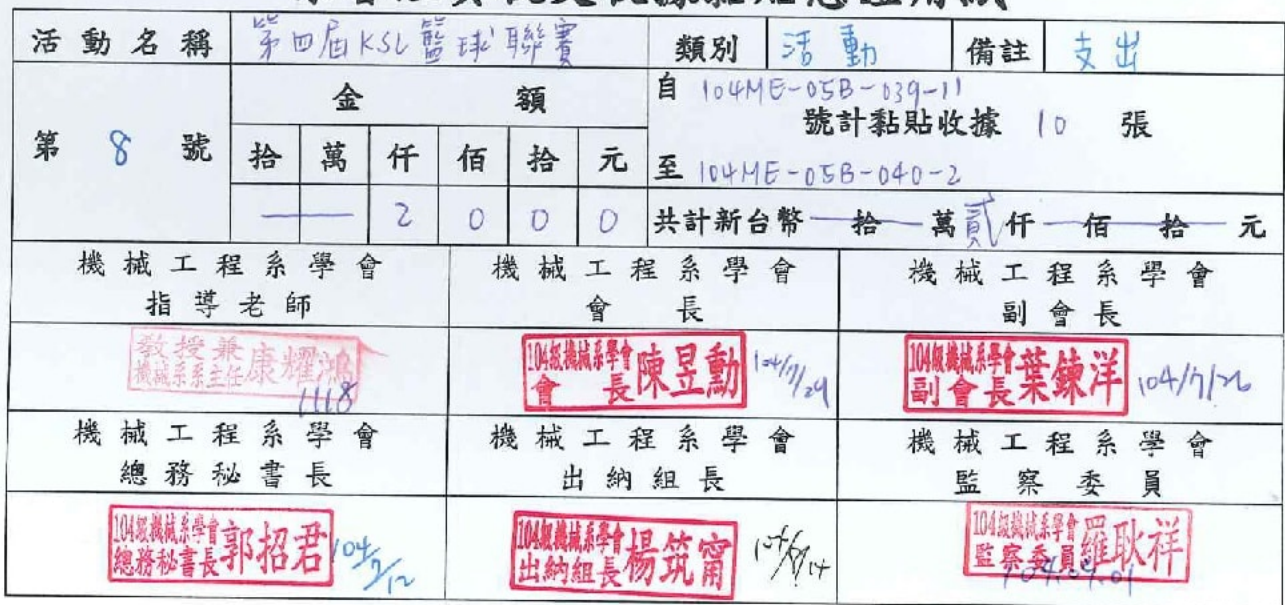 活動名稱 第四屆KSL籃球聯賽 類別 活動 備註 支出
第 8 號
金額
拾 萬 仟 佰 拾 元
2 0 0 0
自 104ME-05B-039-11
號計黏貼收據 10 張
至 104ME-05B-040-2
共計新台幣 拾 萬 貳 仟 佰 拾 元
機械工程系學會 機械工程系學會 機械工程系學會
指導老師 會長 副會長
教授兼
機械系系主任 康耀鴻
1118
104級機械系學會
會長 陳昱勳
104級機械系學會
副會長 葉鍊洋 104/7/26
機械工程系學會 機械工程系學會 機械工程系學會
總務秘書長 出納組長 監察委員
104級機械系學會
總務秘書長 郭招君
104級機械系學會
出納組長 楊筑甯
104級機械系學會
監察委員 羅耿祥
104.09.01